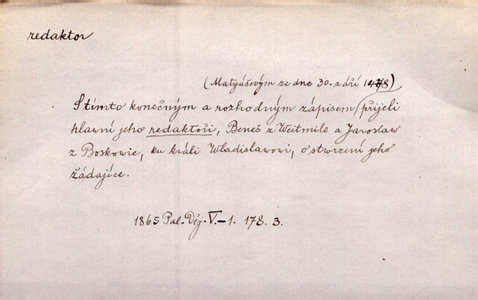 redaktor
(Matyášovým ze dne 30. září 1478)
S tímto konečným a rozhodným zápisem přijeli
hlavní jeho redaktoři, Beneš z Weitmile a Jaroslaw
z Boskowic, ku králi Wladislawowi, o stwrzení jeho
žádajíce.
1865 Pal. Děj. V-1. 178. 3.